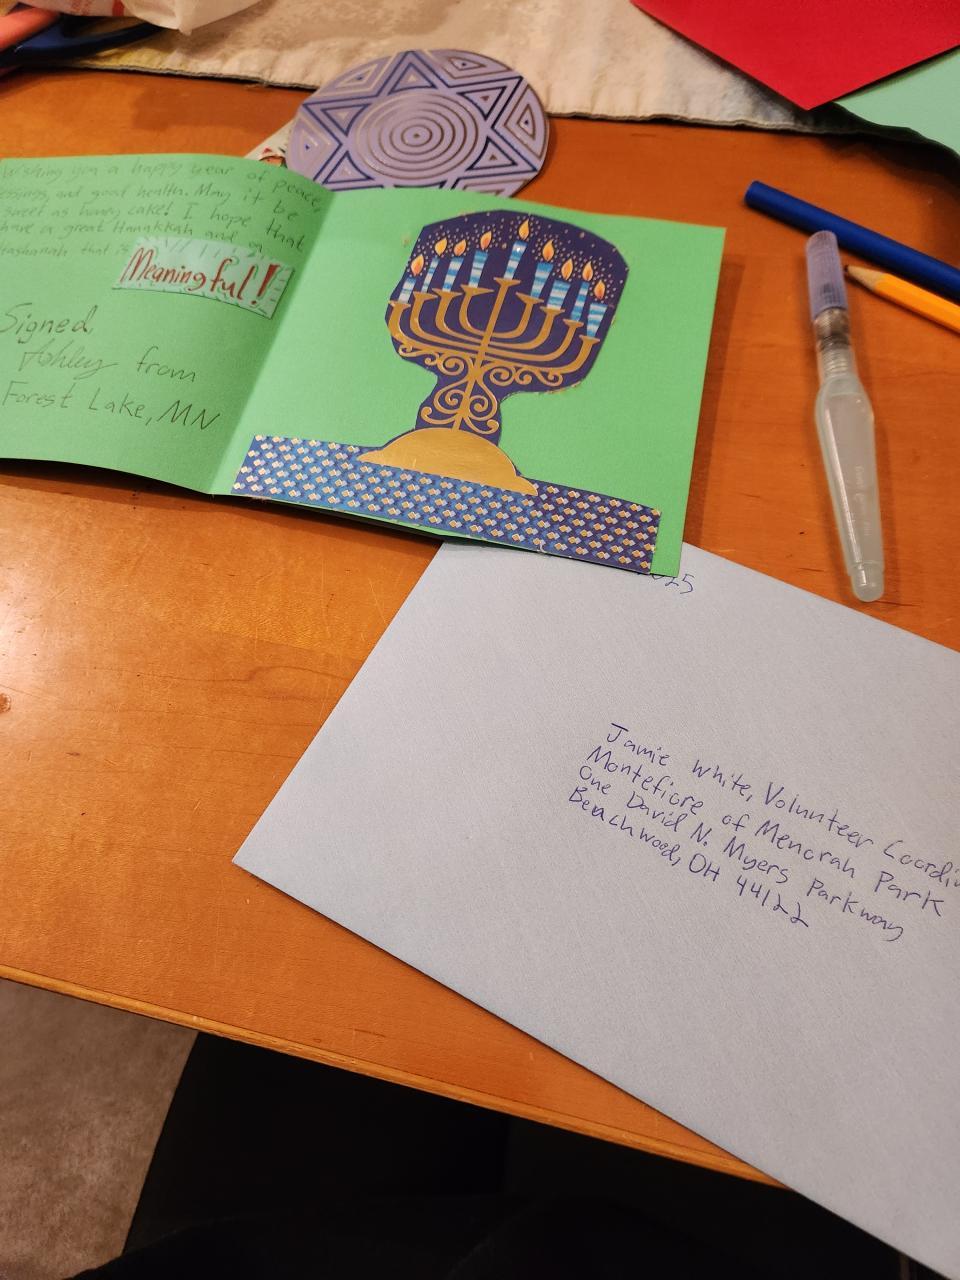 Wishing you a happy year of peace,
essings, and good health. May it be
sweet as honey cake! I hope that
have a great Hanukkah and a
Hashanah that is
Meaningful!
Signed,
Ashley from
Forest Lake, MN
025
Jamie White, Volunteer Coordin
Montefiore of Menorah Park
One David N. Myers Parkway
Beachwood, OH 44122